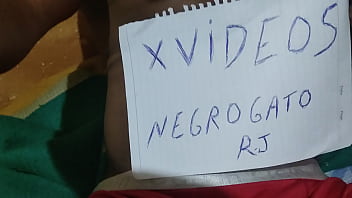 XViDEOS
NEGROGATO
R.J